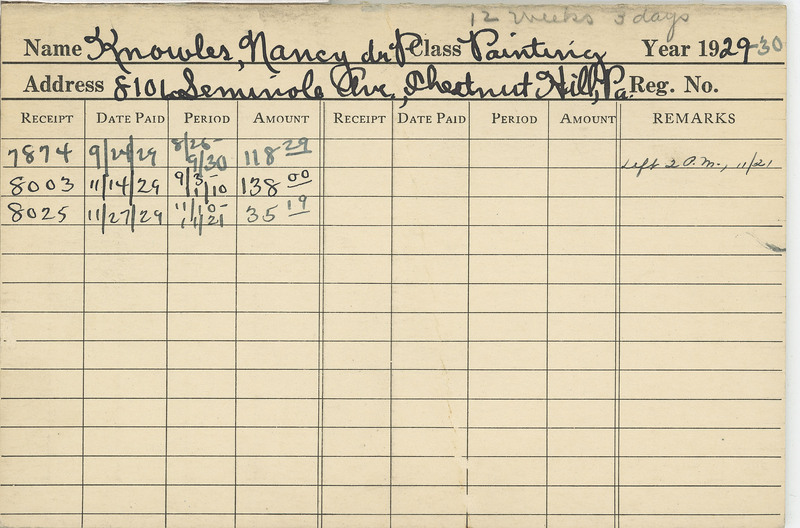 12 weeks 3 days
Name Knowles, Nancy du P Class Painting Year 1929-30
Address 8106 Seminole Ave., Chestnut Hill, Pa. Reg. No.
RECEIPT DATE PAID PERIOD AMOUNT RECEIPT DATE PAID PERIOD AMOUNT REMARKS
7874 9/24/29 8/26- 9/30 118 29 Left 2 P.M., 11/21
8003 11/14/29 9/3- 11/10 138 00
8025 11/27/29 11/10- 11/21 35 19